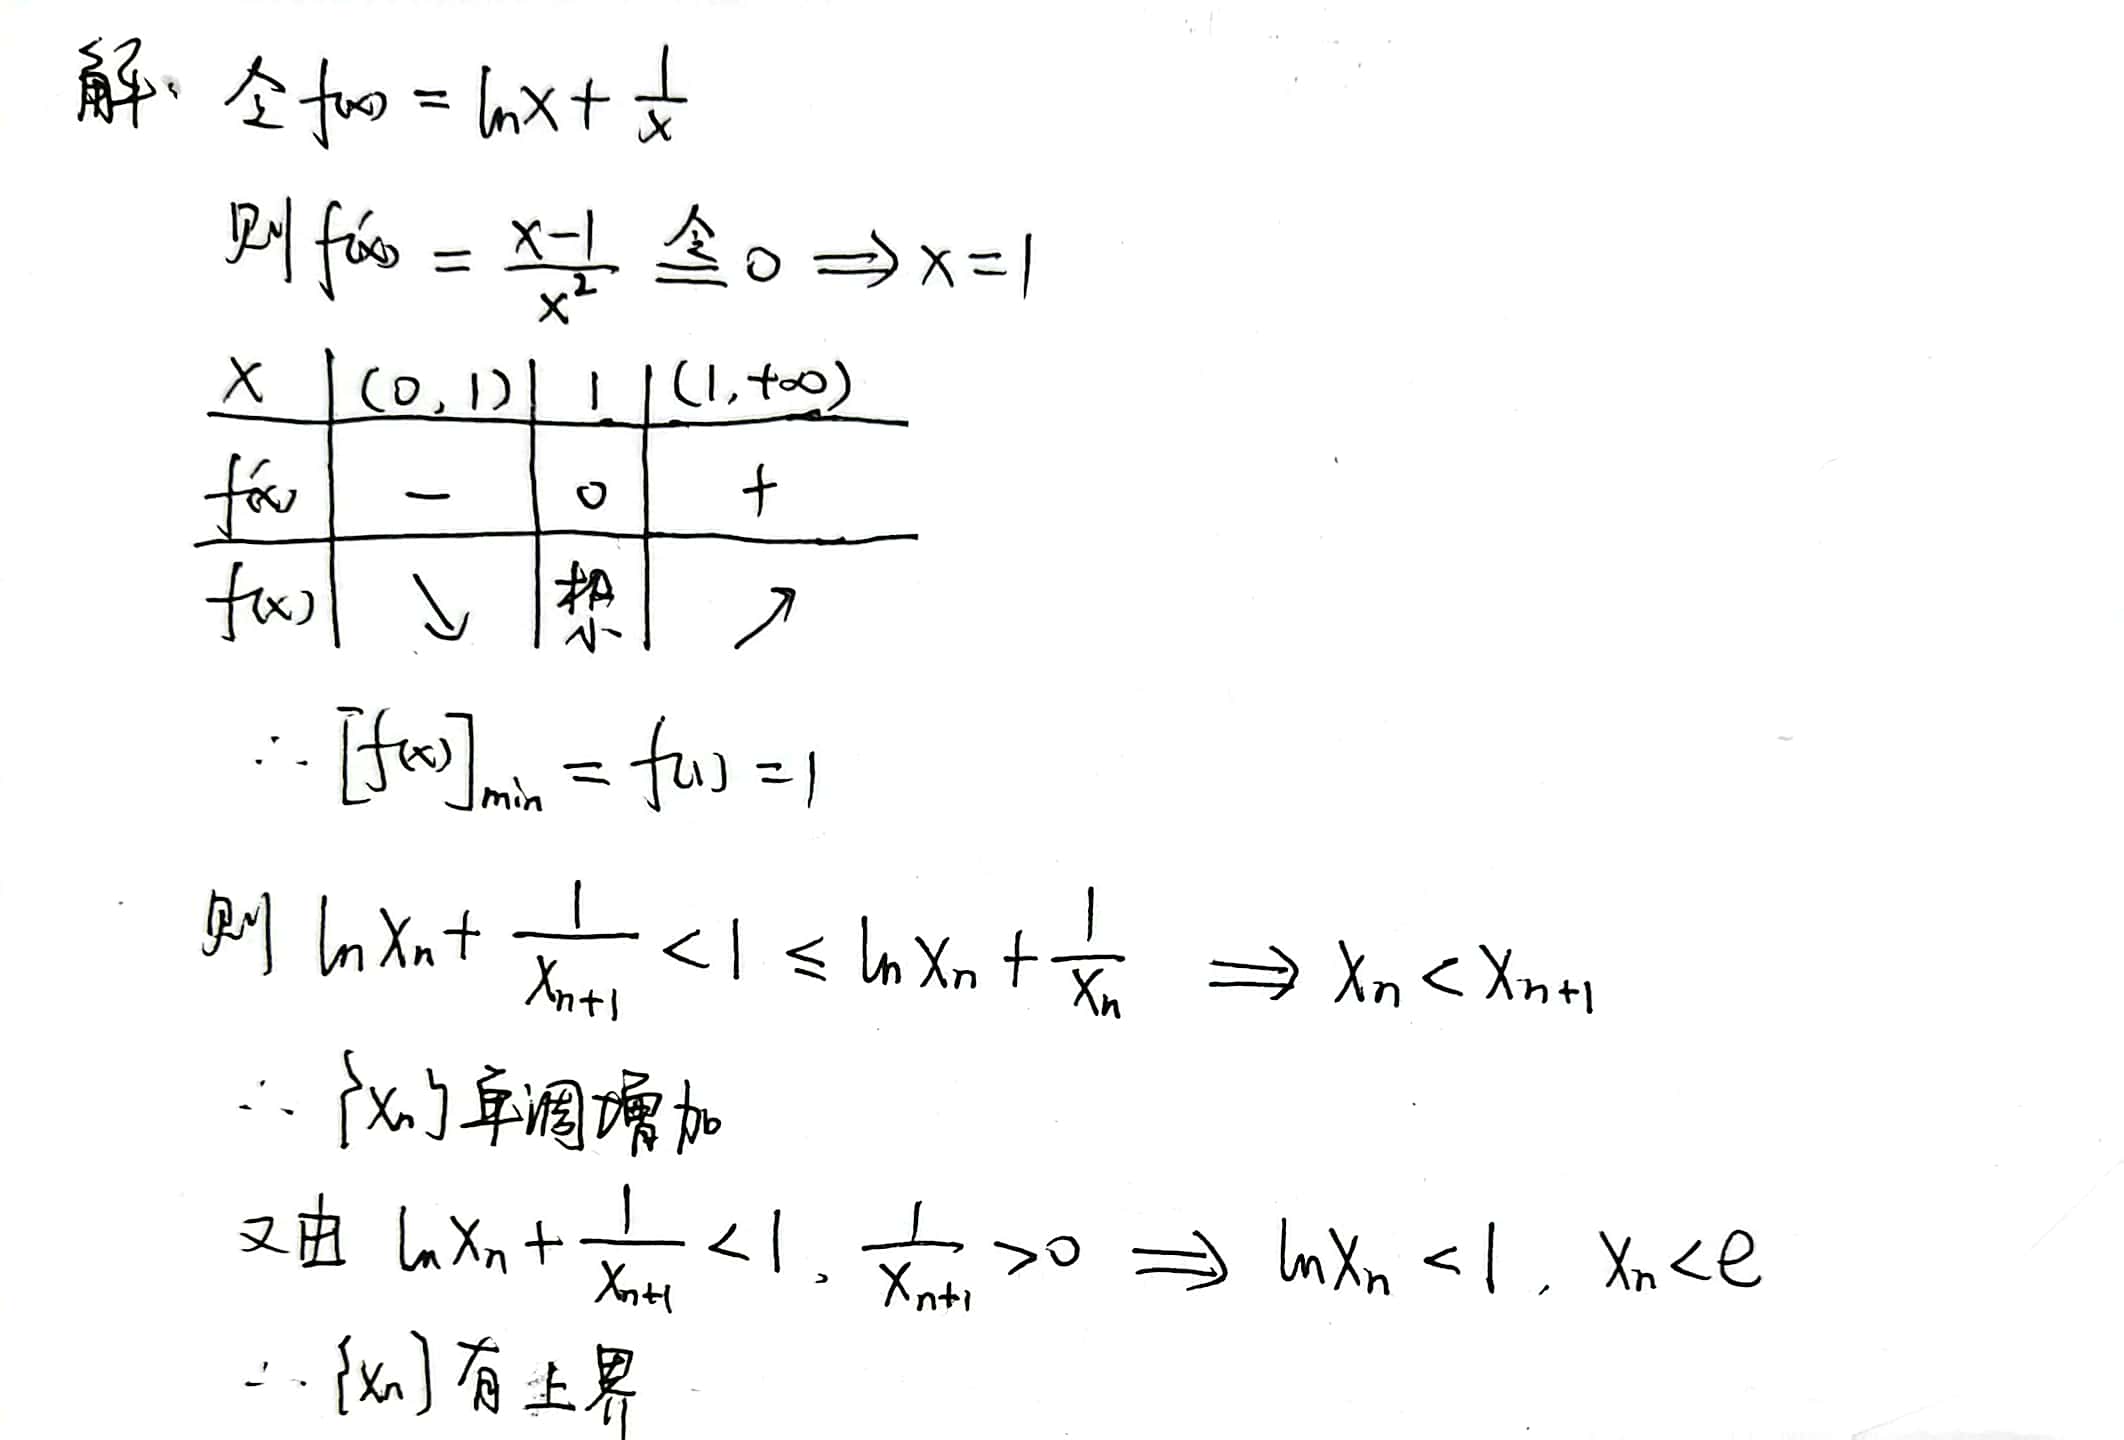 解: 令 f(x) = lnx + 1/x
则 f'(x) = (x-1)/x² 令= 0 ⟹ x=1
x | (0,1) | 1 | (1,+∞)
f'(x) | − | 0 | +
f(x) | ↘ | 极小 | ↗
∴ [f(x)]min = f(1) = 1
则 ln Xn + 1/Xn+1 < 1 ≤ ln Xn + 1/Xn ⟹ Xn < Xn+1
∴ {Xn} 单调增加
又由 ln Xn + 1/Xn+1 < 1, 1/Xn+1 > 0 ⟹ ln Xn < 1, Xn < e
∴ {Xn} 有上界